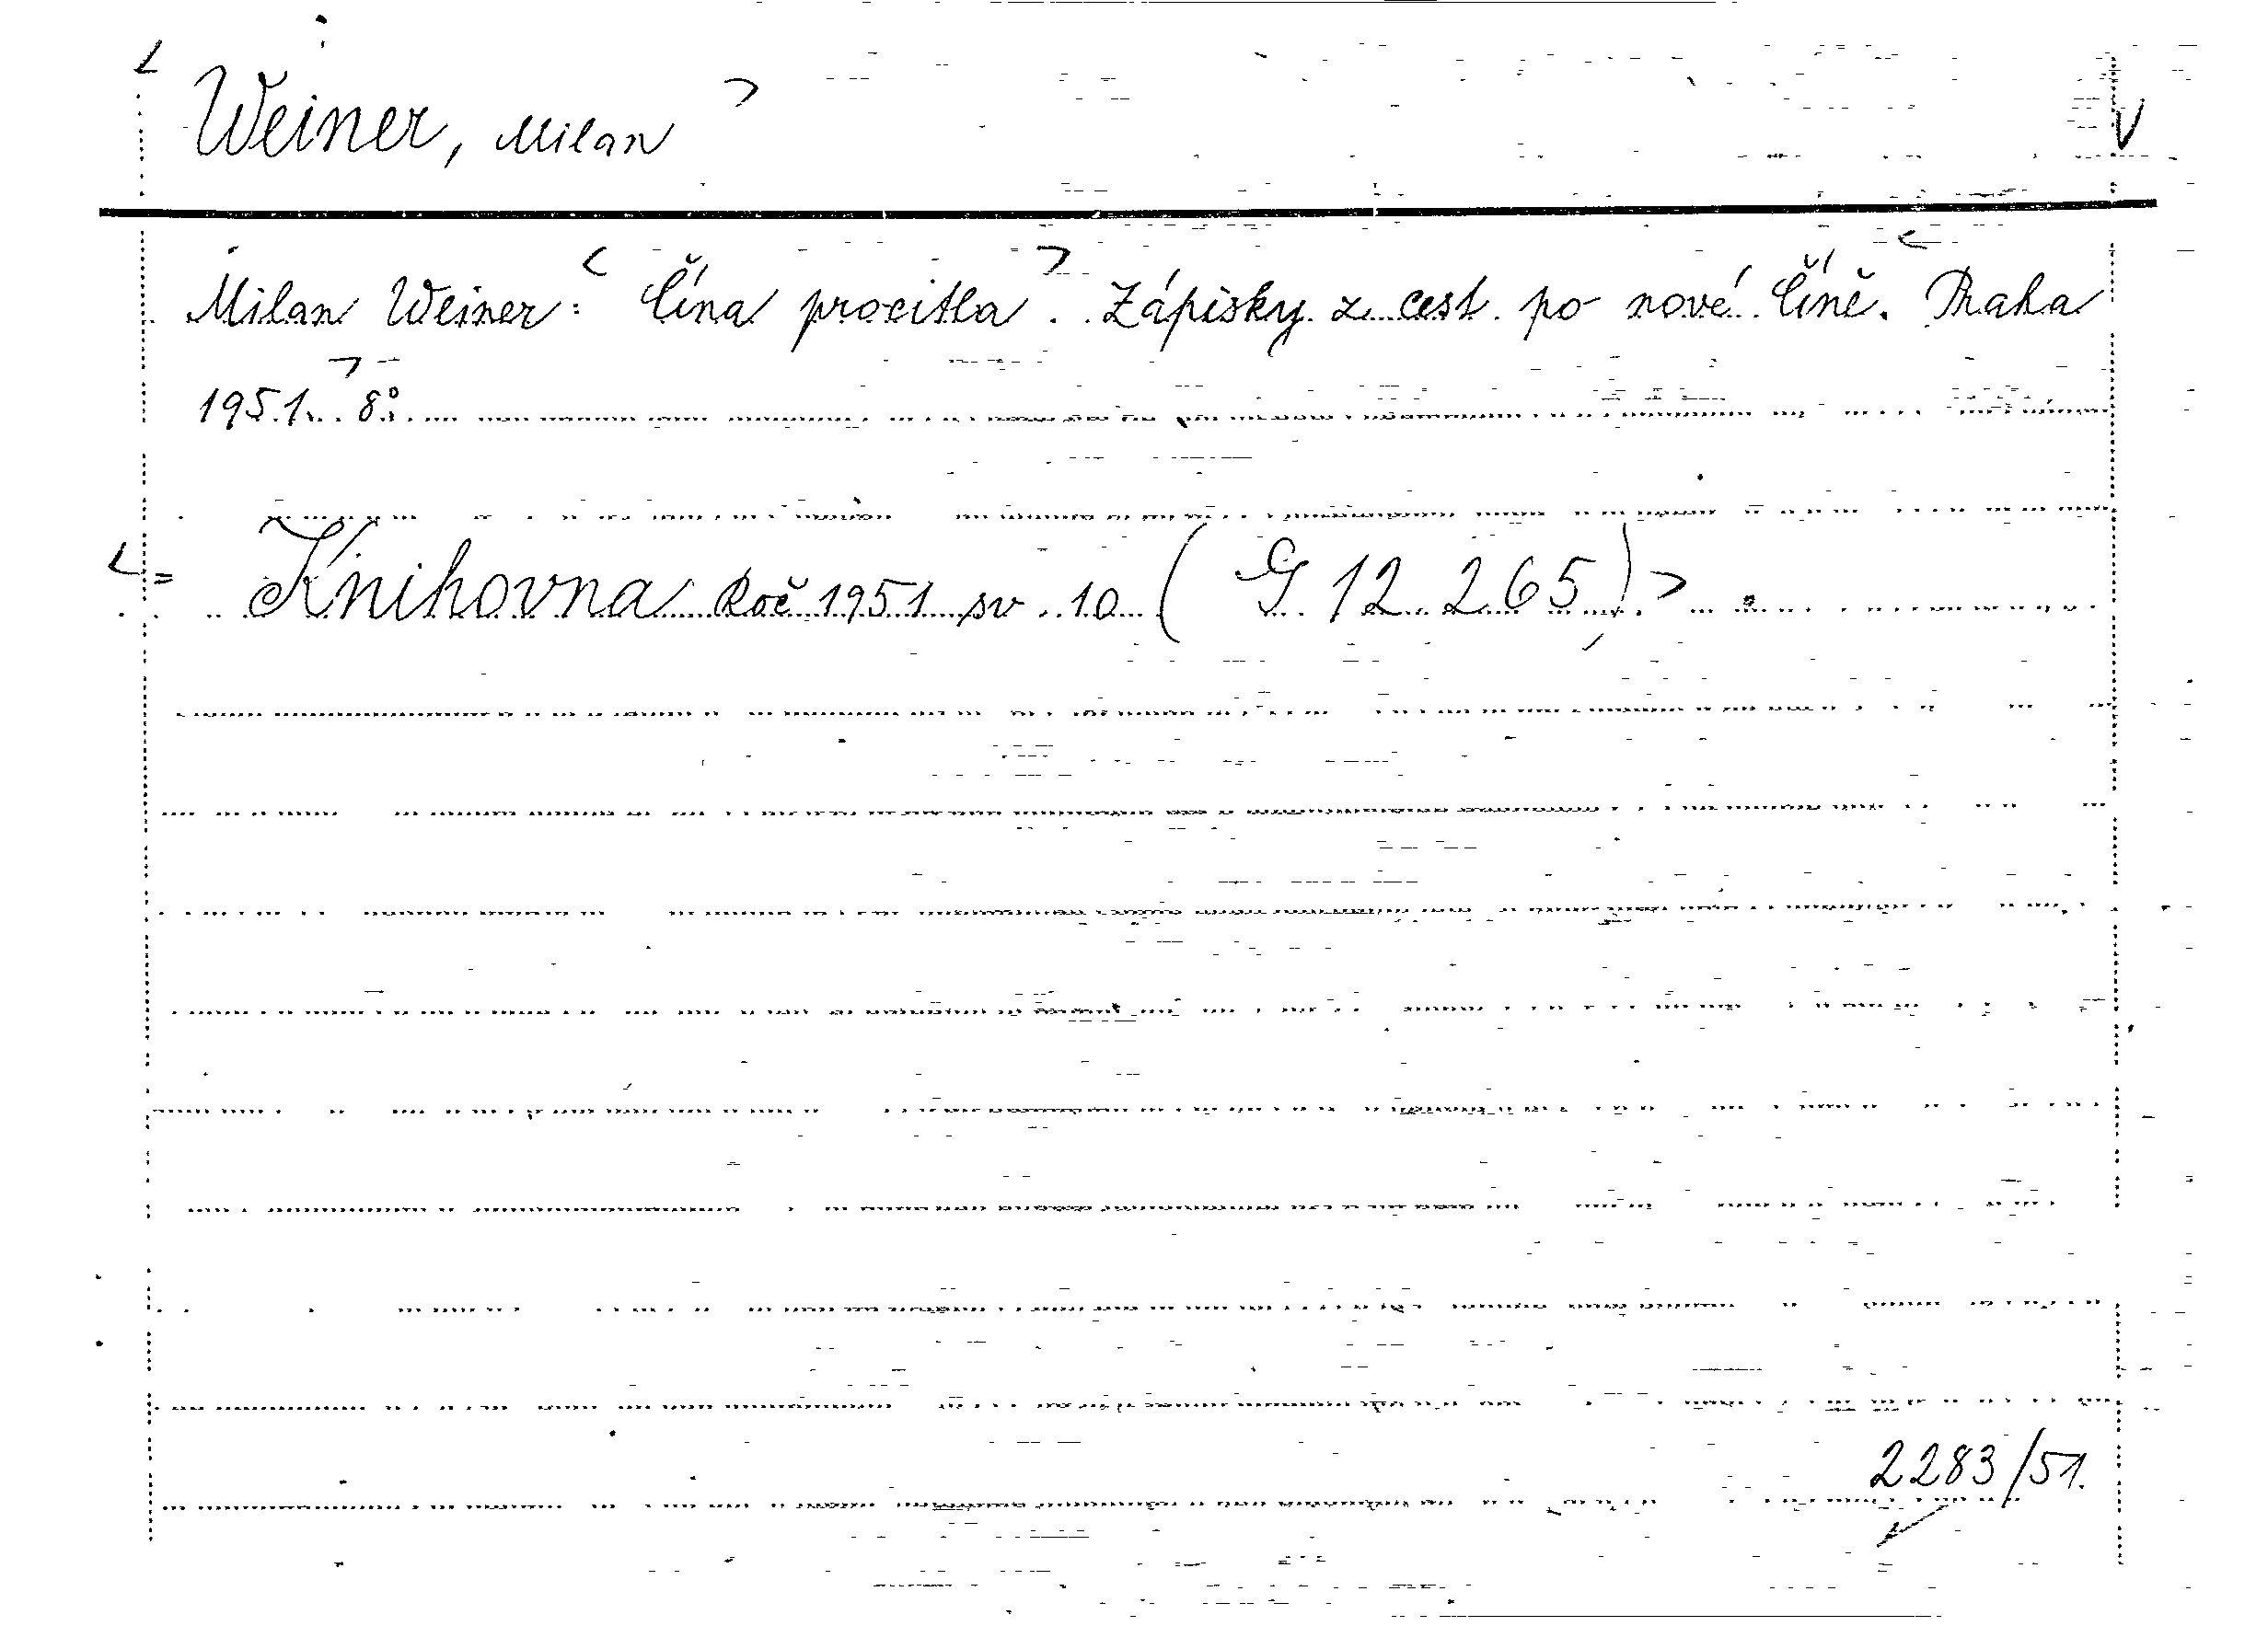 Weiner, Milan
Milan Weiner: Čína procitla. Zápisky z cest po nové Číně. Praha
1951. 8°.
= Knihovna Roč 1951 sv. 10 (G 12.265).
2283/51.